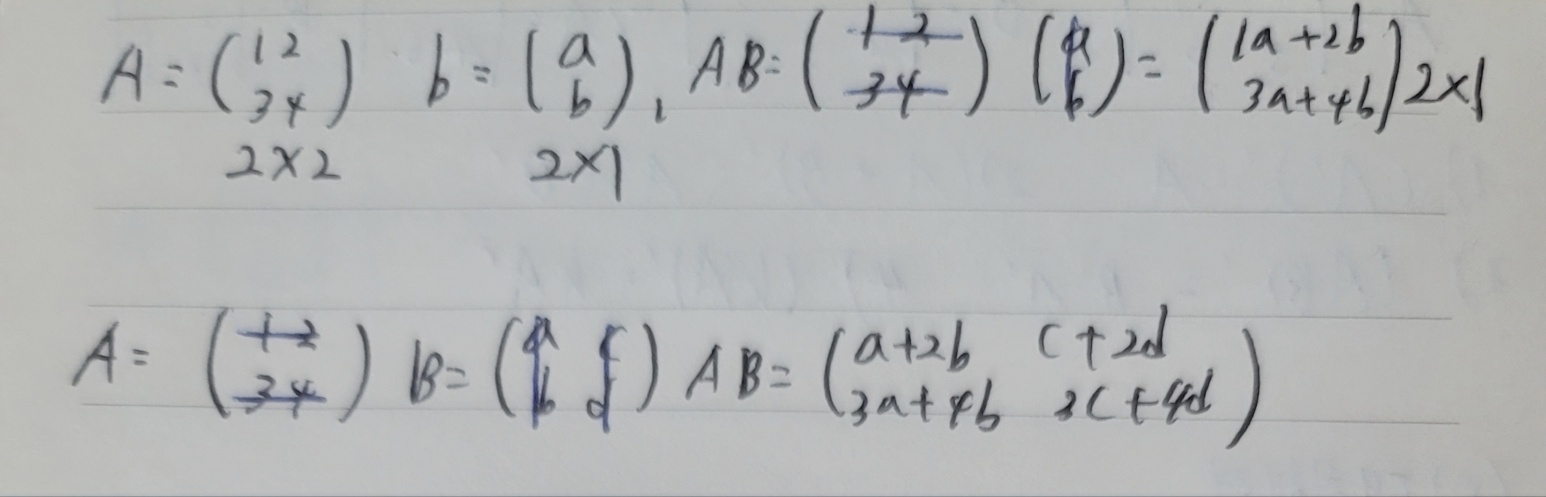 A = (1 2 3 4) b = (a b), AB = (1 2 3 4) (a b) = (1a+2b 3a+4b) 2×1
2×2 2×1
A = (1 2 3 4) B = (a c b d) AB = (a+2b c+2d 3a+4b 3c+4d)